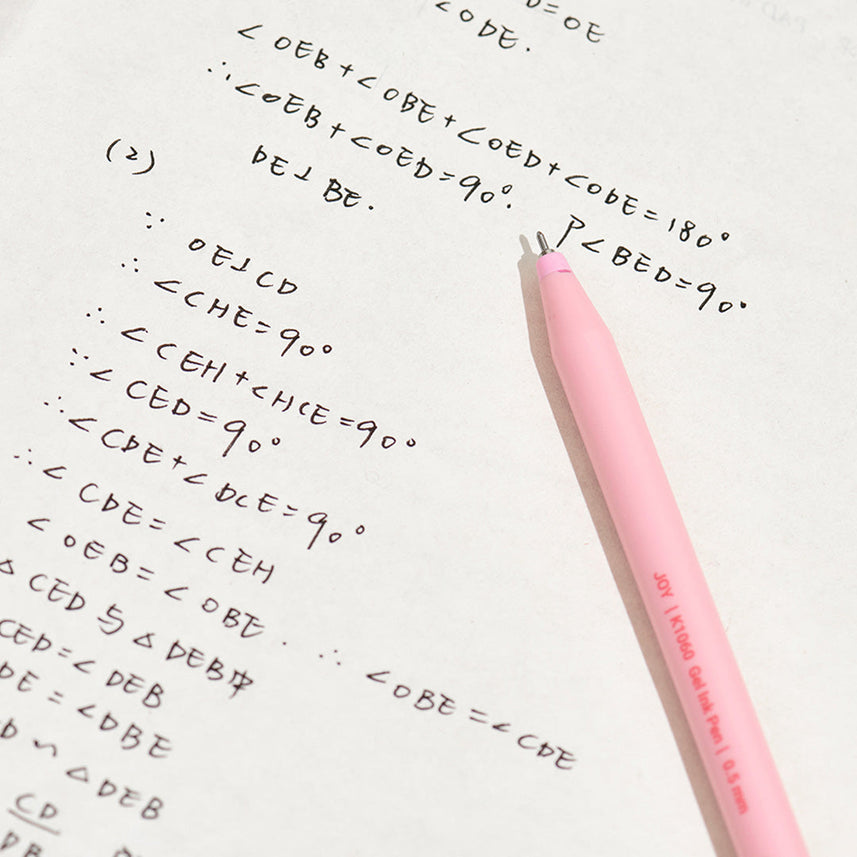 =OE
<ODE.
<OEB+<OBE+<OED+<ODE=180°
∴<OEB+<OED=90°. P<BED=90°
DE⊥BE.
(2)
∵ OE⊥CD
∴ <CHE=90°
∴ <CEH+<HCE=90°
∵<CED=90°
∴<CDE+<DCE=90°
∴<CDE=<CEH
<OEB=<OBE. ∴ <OBE=<CDE
△CED与△DEB中
CED=<DEB
DE=<DBE
D∽△DEB
CD
DB
JOY | K1060 Gel Ink Pen | 0.5 mm